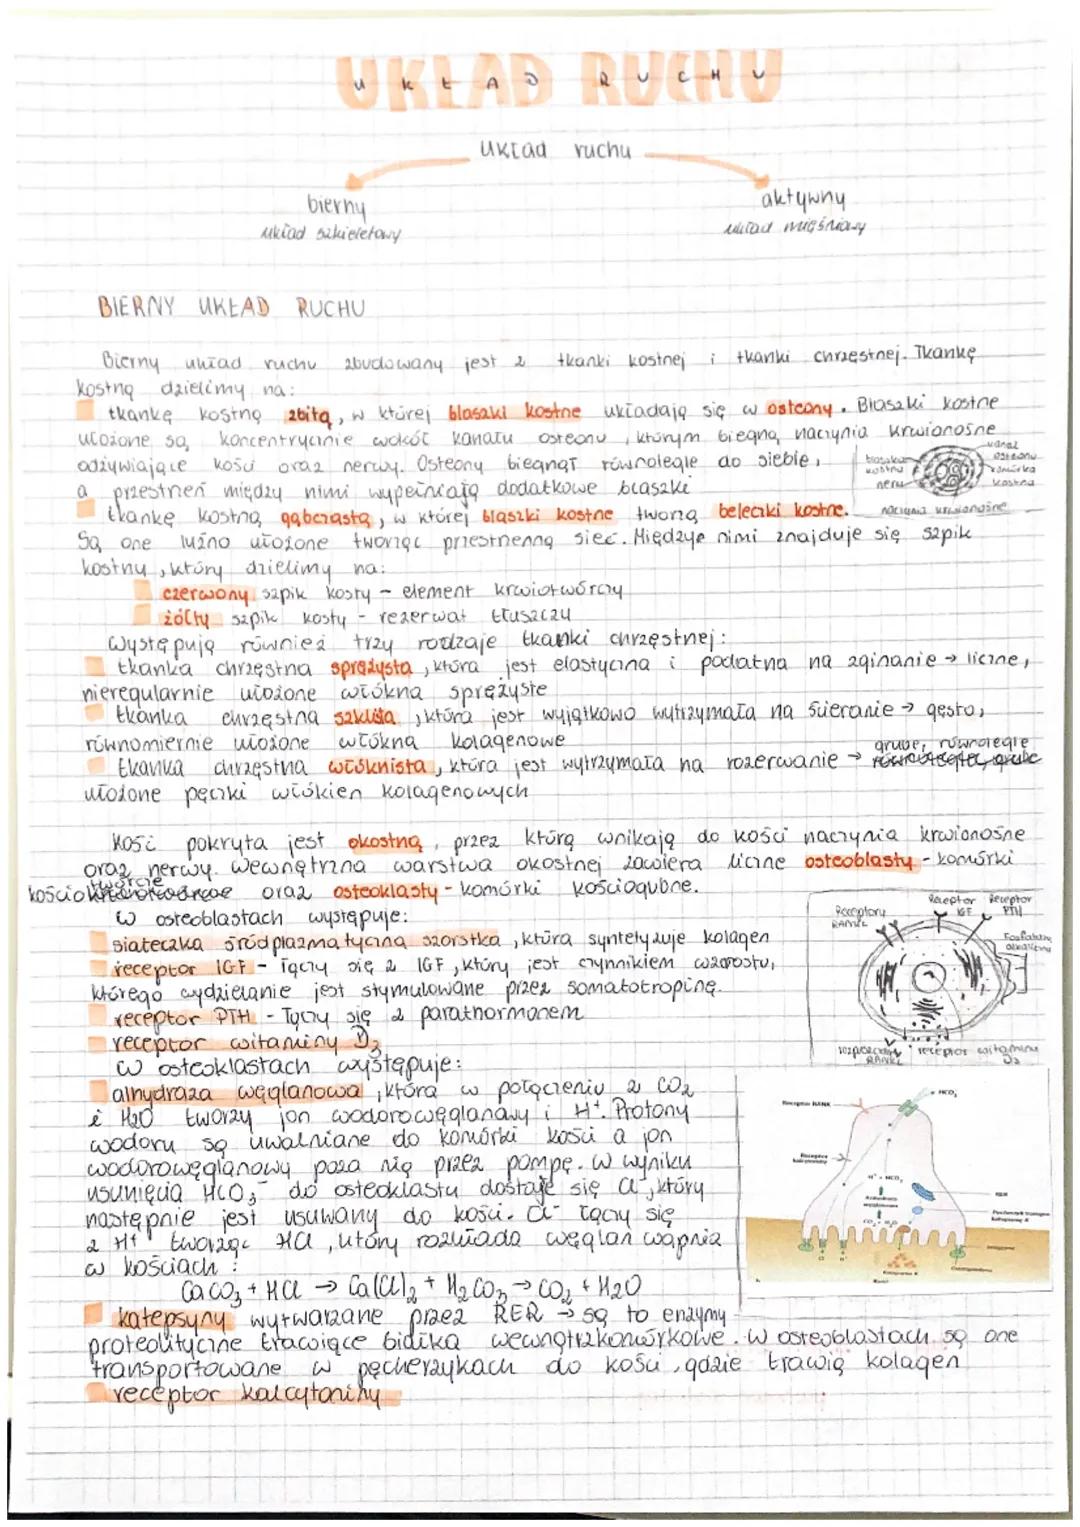 UKŁAD RUCHU
układ ruchu
bierny
układ szkieletowy
aktywny
układ mięśniowy
BIERNY UKŁAD RUCHU
Bierny układ ruchu zbudowany jest z tkanki kostnej i tkanki chrzęstnej. Tkankę
kostną dzielimy na:
tkankę kostną zbitą, w której blaszki kostne układają się w osteony. Blaszki kostne
ułożone są koncentrycznie wokół kanału osteonu, którym biegną naczynia krwionośne
odżywiające kości oraz nerwy. Osteony biegną równolegle do siebie,
a przestrzeń między nimi wypełniają dodatkowe blaszki
blaszka kostna
nerw
kanał osteonu
komórka kostna
naczynia krwionośne
tkankę kostną gąbczastą, w której blaszki kostne tworzą beleczki kostne.
Są one luźno ułożone tworząc przestrzenną sieć. Międzye nimi znajduje się szpik
kostny, który dzielimy na:
czerwony szpik kosty - element krwiotwórczy
żółty szpik kosty - rezerwat tłuszczu
Występują również trzy rodzaje tkanki chrzęstnej:
tkanka chrzęstna sprężysta, która jest elastyczna i podatna na zginanie → liczne,
nieregularnie ułożone włókna sprężyste
tkanka chrzęstna szklista, która jest wyjątkowo wytrzymała na ścieranie → gęsto,
równomiernie ułożone włókna kolagenowe
tkanka chrzęstna włóknista, która jest wytrzymała na rozerwanie → grube, równoległe
ułożone pęczki włókien kolagenowych
Kość pokryta jest okostną, przez którą wnikają do kości naczynia krwionośne
oraz nerwy. Wewnętrzna warstwa okostnej zawiera liczne osteoblasty - komórki
kościotwórcze oraz osteoklasty - komórki kościogubne.
W osteoblastach występuje:
siateczka śródplazmatyczna szorstka, która syntetyzuje kolagen
receptor IGF - łączy się z IGF, który jest czynnikiem wzrostu,
którego wydzielanie jest stymulowane przez somatotropinę.
receptor PTH - łączy się z parathormonem
receptor witaminy D3
Receptory RANKL
Receptor IGF
Receptor PTH
receptor witaminy D3
W osteoklastach występuje:
anhydraza węglanowa, która w połączeniu z CO2
i H2O tworzy jon wodorowęglanowy i H+. Protony
wodoru są uwalniane do komórki kości a jon
wodorowęglanowy poza nią przez pompę. W wyniku
usunięcia HCO3- do osteoklastu dostaje się Cl-, który
następnie jest usuwany do kości. Cl- łączy się
z H+ tworząc HCl, który rozkłada węglan wapnia
w kościach:
CaCO3 + HCl → Ca(Cl)2 + H2CO3 → CO2 + H2O
Receptor RANK
HCO3
Receptor kalcytoniny
H+ + HCO3
CO2 + H2O
RER
katepsyny wytwarzane przez RER → są to enzymy
proteolityczne trawiące białka wewnątrzkomórkowe. W osteoblastach są one
transportowane w pęcherzykach do kości, gdzie trawią kolagen
receptor kalcytoniny